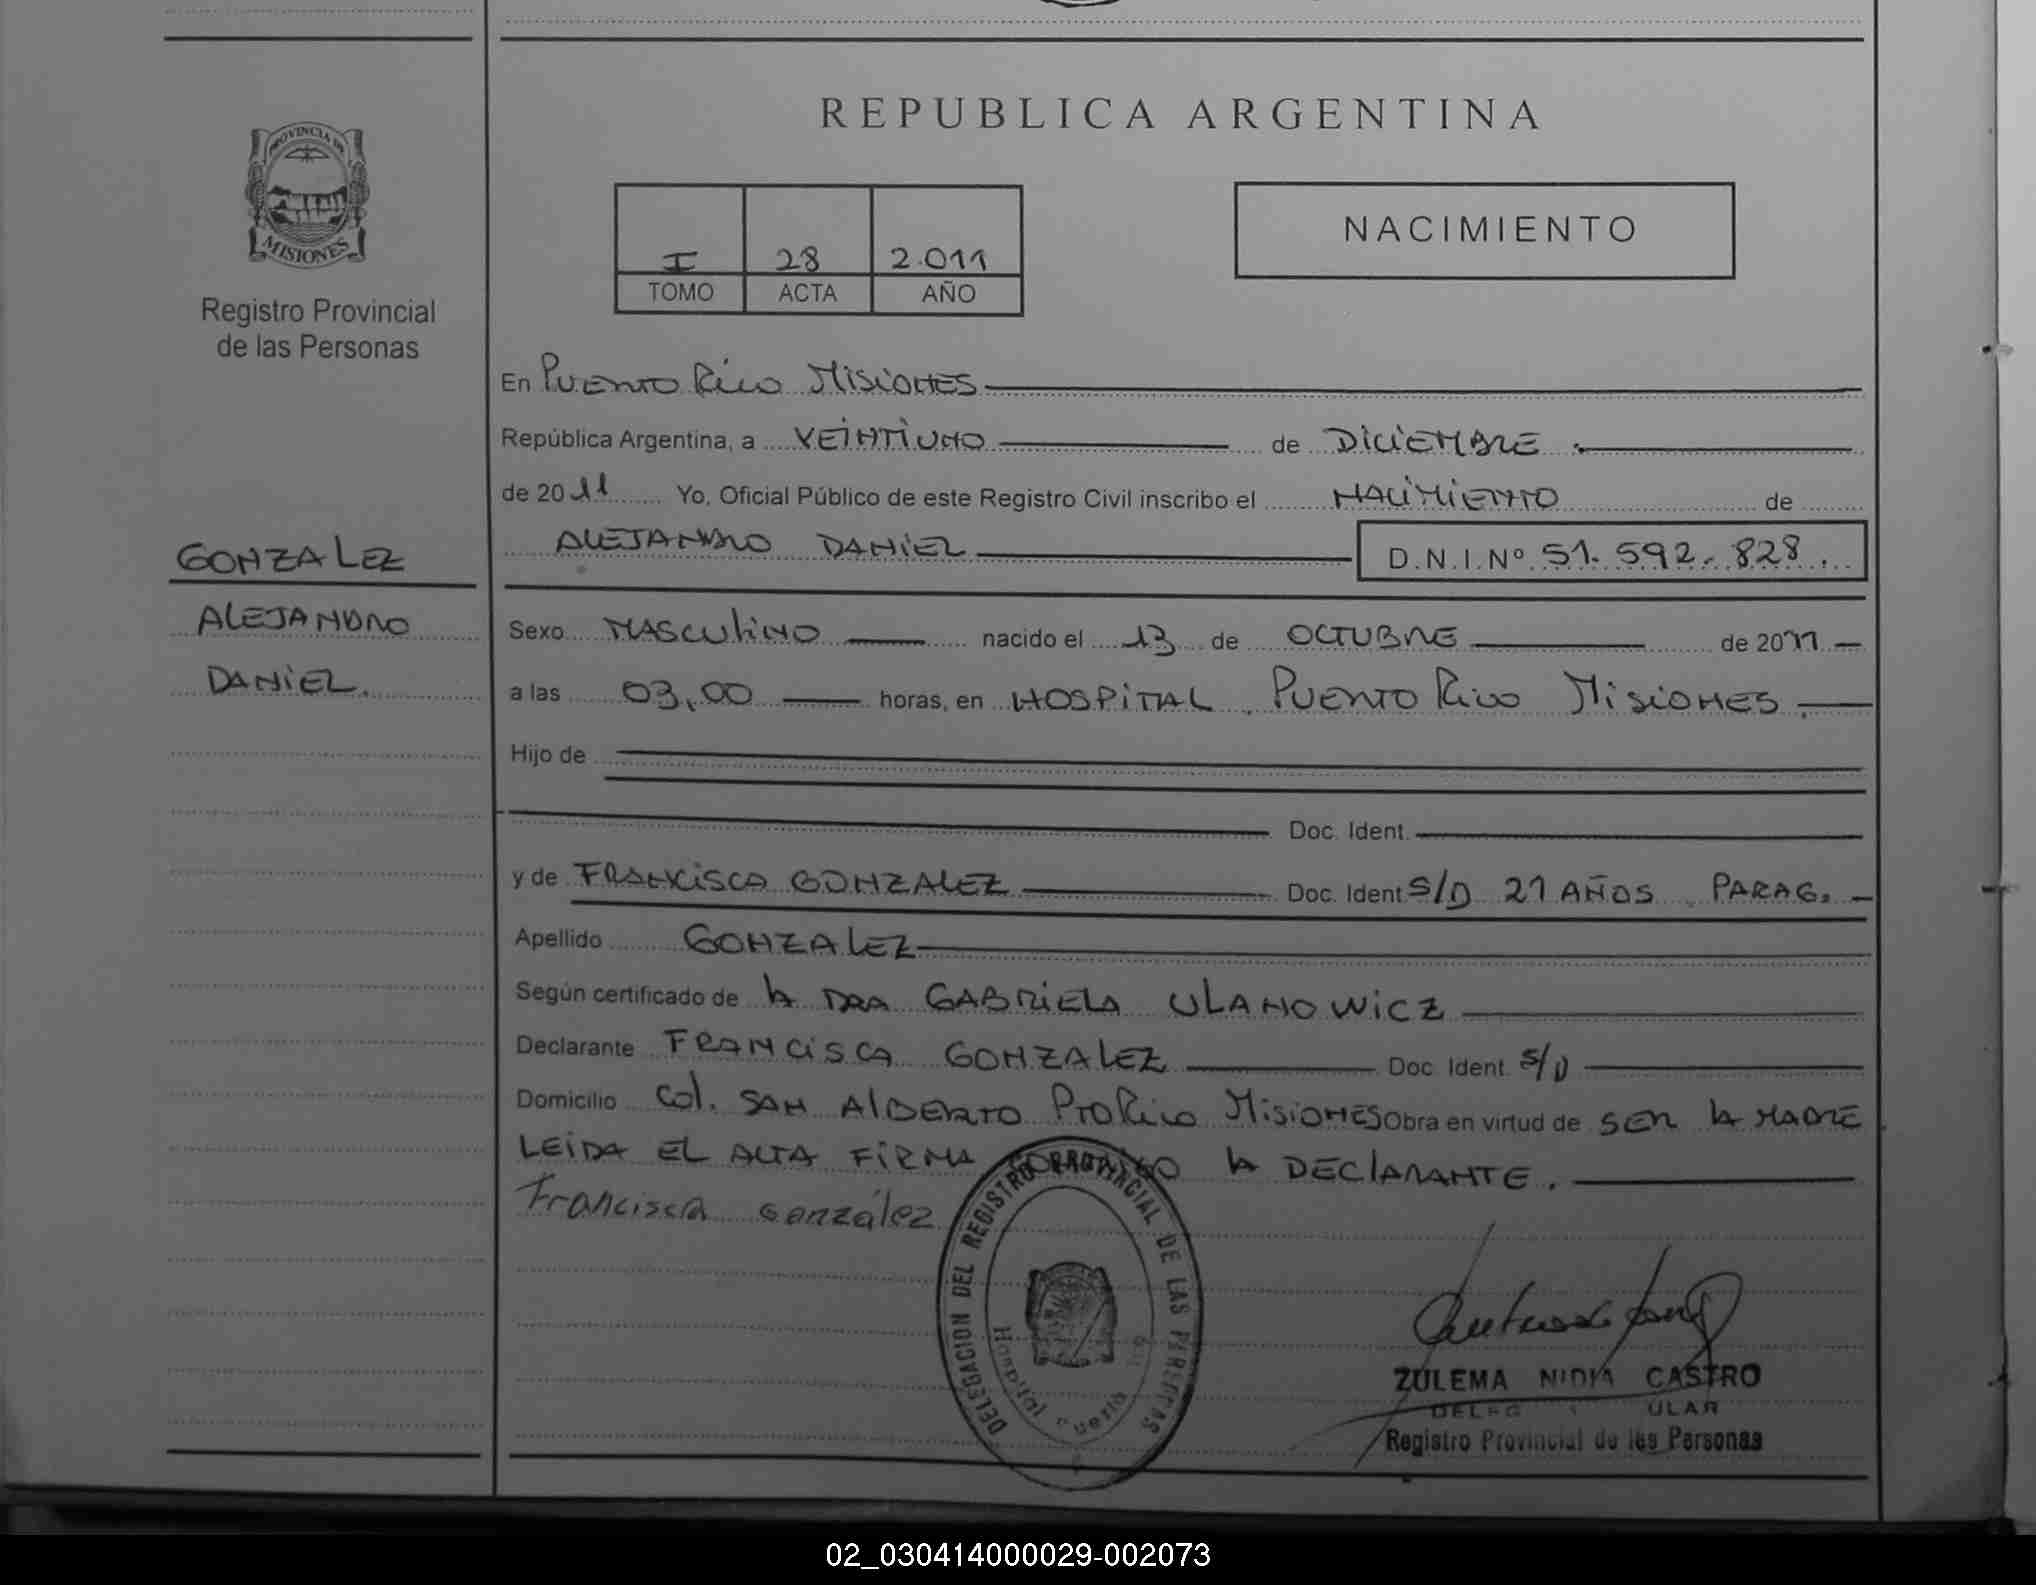 REPUBLICA ARGENTINA
PROVINCIA DE
MISIONES
Registro Provincial
de las Personas
I 28 2.011
TOMO ACTA AÑO
NACIMIENTO
En PUERTO RICO MISIONES
República Argentina, a VEINTIUNO de DICIEMBRE.
de 2011 Yo, Oficial Público de este Registro Civil inscribo el NACIMIENTO de
ALEJANDRO DANIEL D.N.I.Nº 51.592.828.
GONZALEZ
ALEJANDRO
DANIEL.
Sexo MASCULINO nacido el 13 de OCTUBRE de 2011
a las 03,00 horas, en HOSPITAL PUERTO RICO MISIONES.
Hijo de
Doc. Ident.
y de FRANCISCA GONZALEZ Doc. Ident S/D 21 AÑOS PARAG.
Apellido GONZALEZ
Según certificado de la DRA GABRIELA ULANOWICZ
Declarante FRANCISCA GONZALEZ Doc. Ident. S/D
Domicilio Col. SAN ALBERTO PTO RICO MISIONES Obra en virtud de SER la MADRE
LEIDA EL ACTA FIRMA CONMIGO la DECLARANTE.
Francisca González
DELEGACION DEL REGISTRO PROVINCIAL DE LAS PERSONAS
Hospital Puerto
ZULEMA NIDIA CASTRO
Registro Provincial de las Personas
02_030414000029-002073